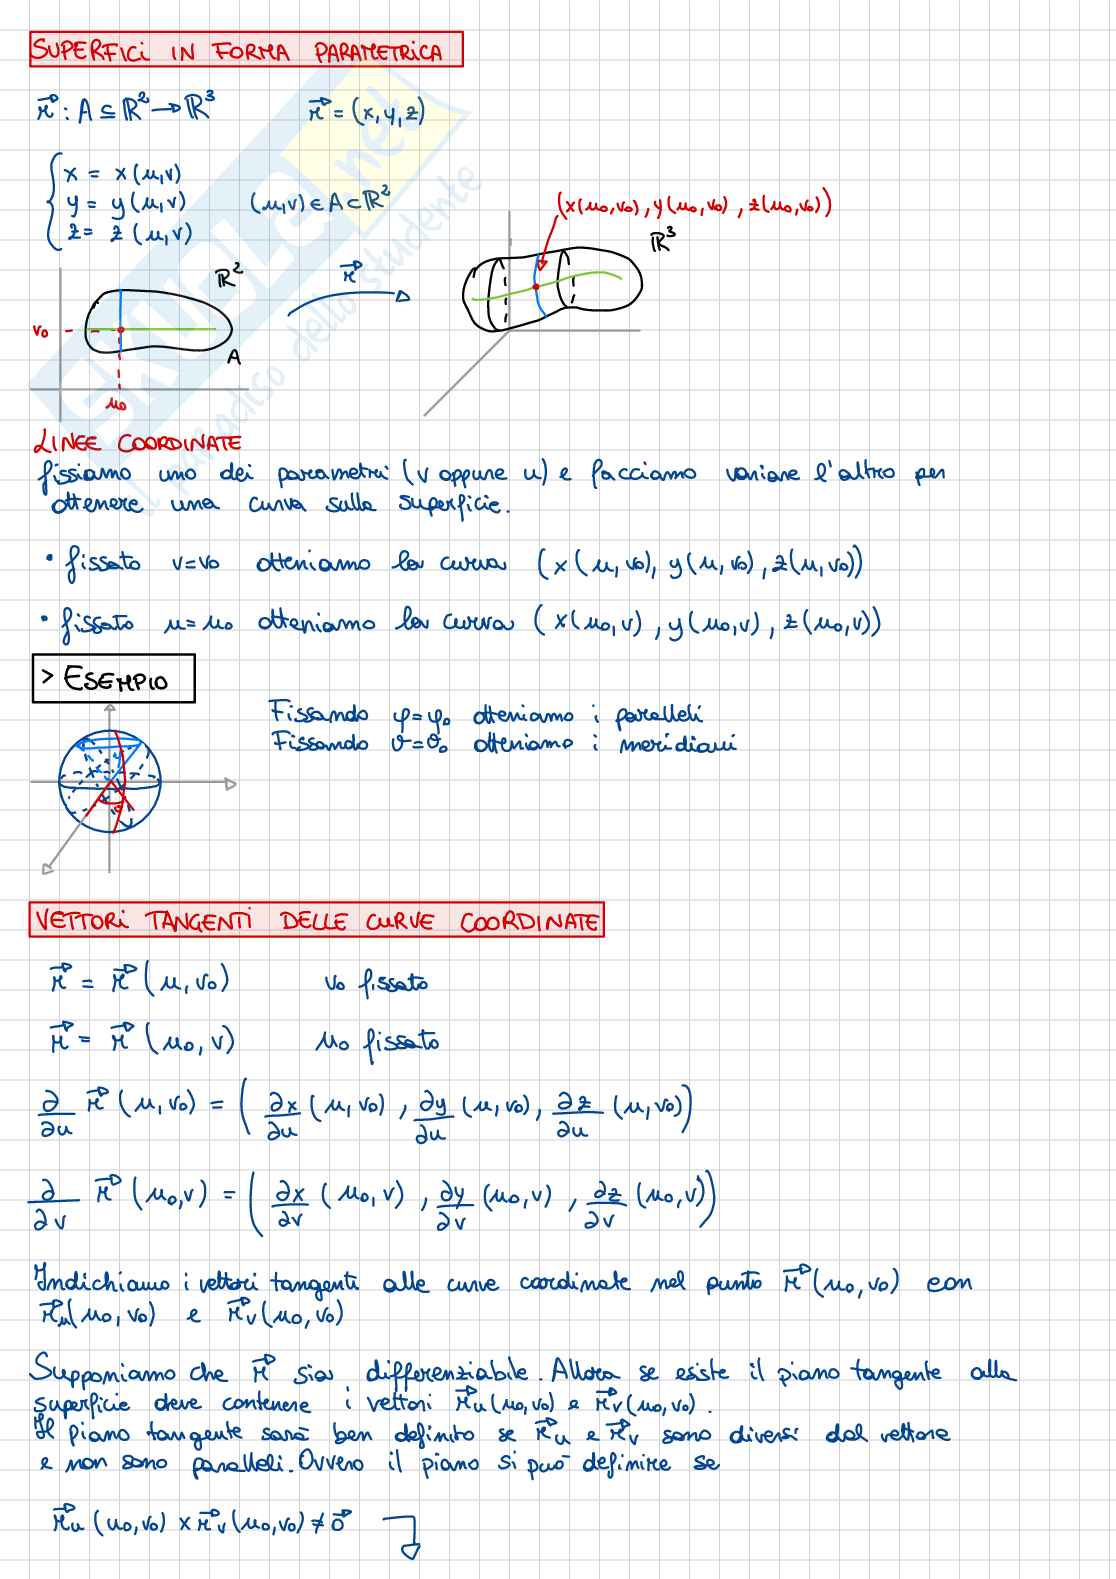 SUPERFICI IN FORMA PARAMETRICA
r⃗ : A ⊆ ℝ² → ℝ³   r⃗ = (x, y, z)
x = x(u,v)
y = y(u,v)   (u,v) ∈ A ⊂ ℝ²
z = z(u,v)
(x(u₀,v₀), y(u₀,v₀), z(u₀,v₀))
ℝ²   r⃗   ℝ³
v₀
A
u₀
LINEE COORDINATE
fissiamo uno dei parametri (v oppure u) e facciamo variare l'altro per
ottenere una curva sulla superficie.
• fissato v=v₀ otteniamo la curva (x(u,v₀), y(u,v₀), z(u,v₀))
• fissato u=u₀ otteniamo la curva (x(u₀,v), y(u₀,v), z(u₀,v))
> ESEMPIO
Fissando φ=φ₀ otteniamo i paralleli
Fissando ϑ=ϑ₀ otteniamo i meridiani
VETTORI TANGENTI DELLE CURVE COORDINATE
r⃗ = r⃗(u,v₀)   v₀ fissato
r⃗ = r⃗(u₀,v)   u₀ fissato
∂/∂u r⃗(u,v₀) = (∂x/∂u (u,v₀), ∂y/∂u (u,v₀), ∂z/∂u (u,v₀))
∂/∂v r⃗(u₀,v) = (∂x/∂v (u₀,v), ∂y/∂v (u₀,v), ∂z/∂v (u₀,v))
Indichiamo i vettori tangenti alle curve coordinate nel punto r⃗(u₀,v₀) con
r⃗u(u₀,v₀) e r⃗v(u₀,v₀)
Supponiamo che r⃗ sia differenziabile. Allora se esiste il piano tangente alla
superficie deve contenere i vettori r⃗u(u₀,v₀) e r⃗v(u₀,v₀).
Il piano tangente sarà ben definito se r⃗u e r⃗v sono diversi dal vettore
e non sono paralleli. Ovvero il piano si può definire se
r⃗u(u₀,v₀) × r⃗v(u₀,v₀) ≠ 0⃗
SKUOLA.net
il paradiso dello studente